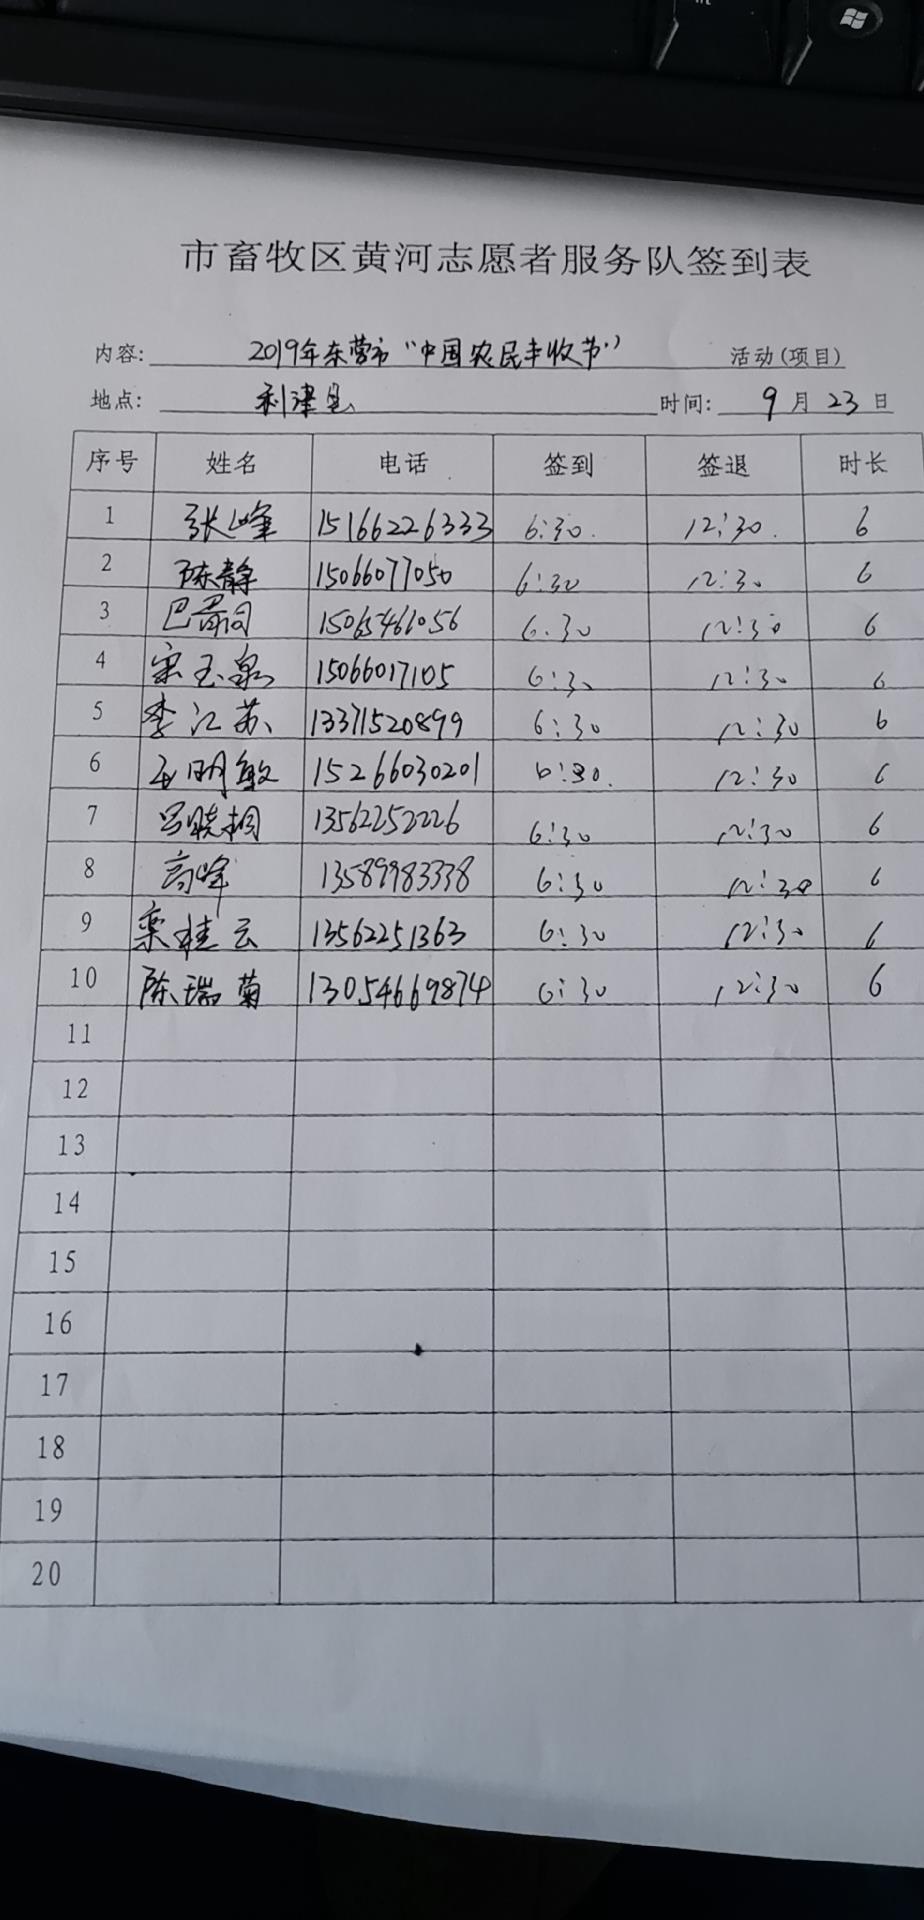 市畜牧区黄河志愿者服务队签到表
内容: 2019年东营市“中国农民丰收节” 活动(项目)
地点: 利津县 时间: 9月23日
序号 姓名 电话 签到 签退 时长
1 张峰 15166226333 6:30 12:30 6
2 陈静 15066077050 6:30 12:30 6
3 15065461056 6.30 12:30 6
4 宋玉泉 15066017105 6:30 12:30 6
5 李江苏 13371520899 6:30 12:30 6
6 王明敏 15266030201 6:30 12:30 6
7 吕晓桐 13562252226 6:30 12:30 6
8 高峰 13589983338 6:30 12:30 6
9 栾桂云 13562251363 6:30 12:30 6
10 陈瑞菊 13054669874 6:30 12:30 6
11
12
13
14
15
16
17
18
19
20